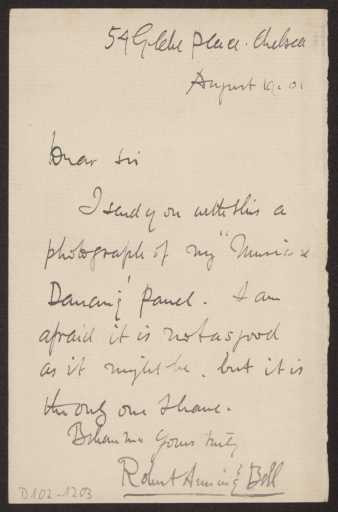 54 Glebe Place. Chelsea
August 19. 01
Dear Sir
I send you with this a
photograph of my "Music &
Dancing" panel. I am
afraid it is not as good
as it might be, but it is
the only one I have.
Believe me Yours truly
Robert Anning Bell
D102-1203